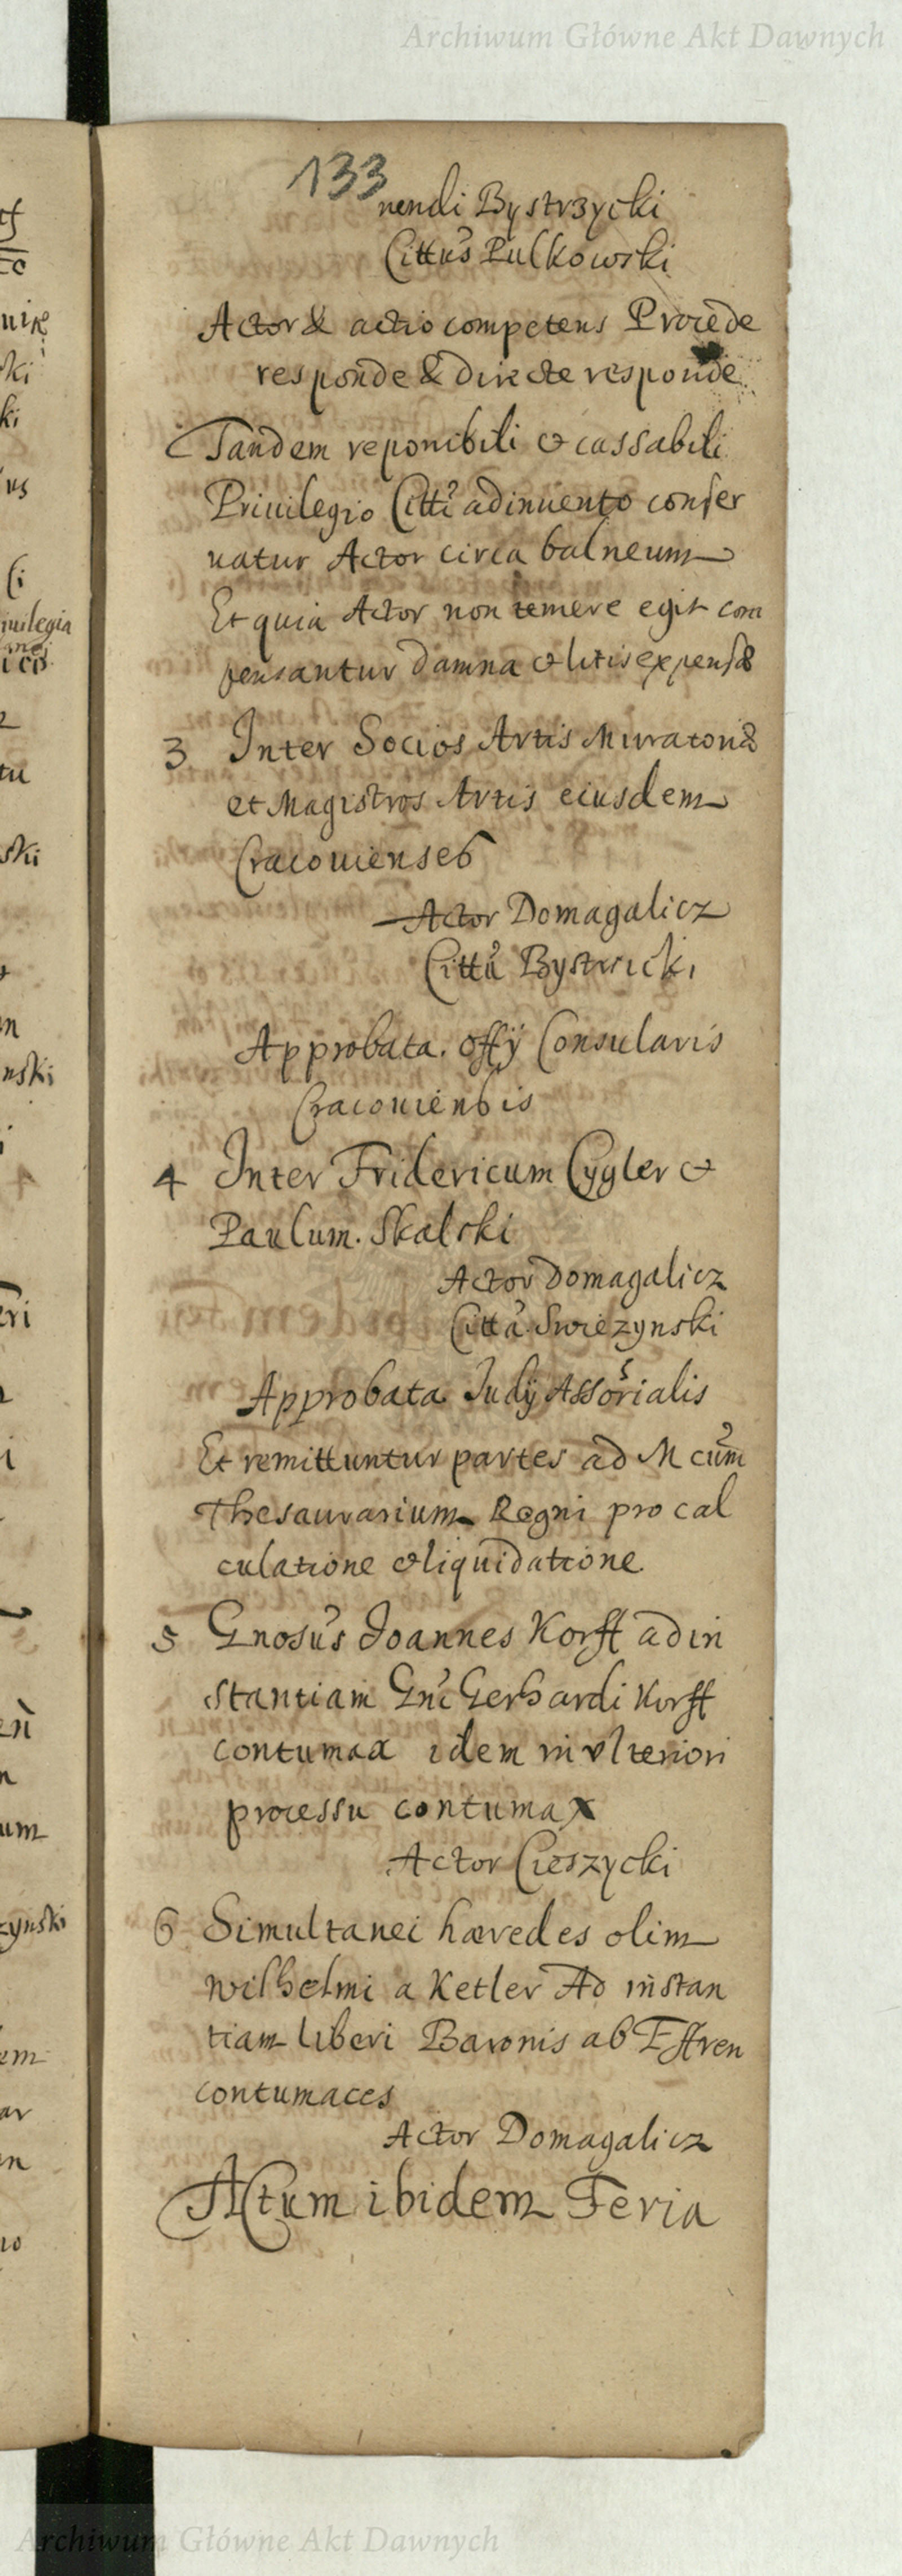 Archiwum Główne Akt Dawnych
133
nendi Bystrzycki
Citt9s Pulkowski
Actor & actio competens Procede
responde & directe responde
Tandem reponibili & cassabili
Priuilegio Citti adinuento conser
uatur Actor circa balneum
Et quia Actor non temere egit com
pensantur damna & litis expensæ
3 Inter Socios Artis Muratoriæ
et Magistros Artis eiusdem
Cracouienses
Actor Domagalicz
Citta Bystricki
Approbata. Offÿ Consularis
Cracouiensis
4 Inter Fridericum Cygler &
Paulum. Skalski
Actor Domagalicz
Citta Swiezynski
Approbata Judÿ Assorialis
Et remittuntur partes ad M cum
Thesaurarium Regni pro cal
culatione & liquidatione.
5 Gnosus Joannes Korff ad in
stantiam Gni Gerhardi Korff
contumax idem in vlteriori
processu contumax
Actor Cieszycki
6 Simultanei hæredes olim
Wilhelmi a Ketler Ad instan
tiam liberi Baronis ab Effren
contumaces
Actor Domagalicz
Actum ibidem Feria
Archiwum Główne Akt Dawnych